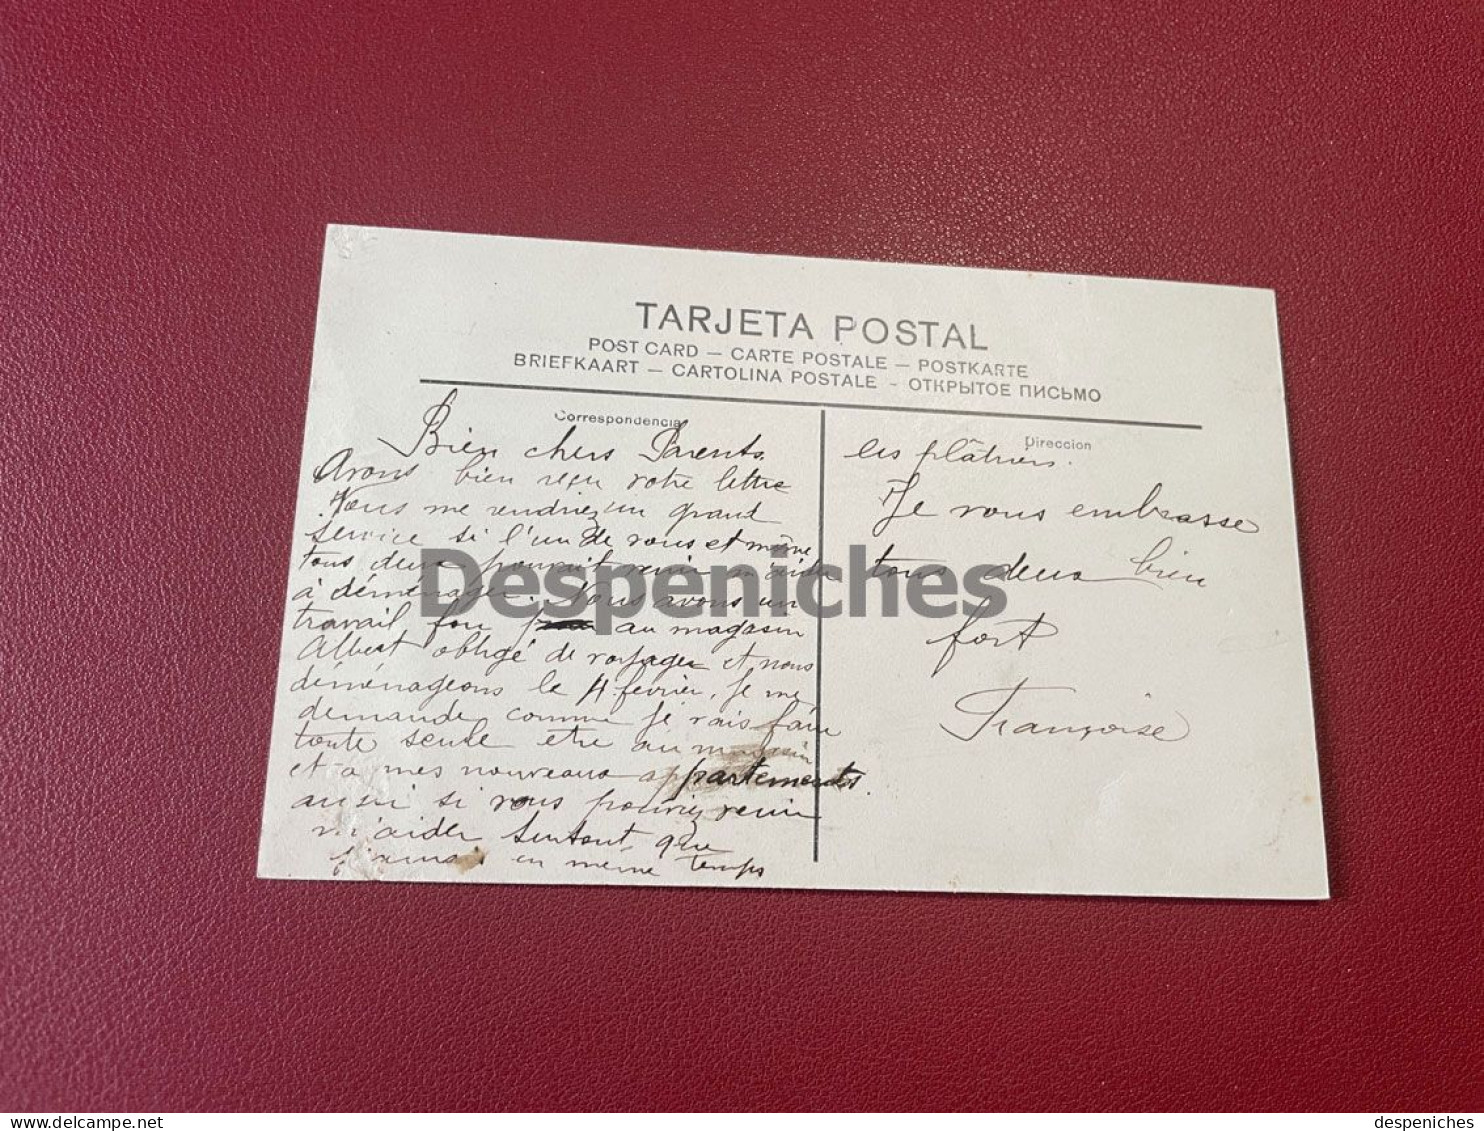 TARJETA POSTAL
POST CARD — CARTE POSTALE — POSTKARTE
BRIEFKAART — CARTOLINA POSTALE - ОТКРЫТОЕ ПИСЬМО
Correspondencia
Bien chers Parents.
Avons bien reçu votre lettre
Vous me rendriez un grand
service si l'un de vous et même
tous deux pouvait venir m'aider
à déménager. Nous avons un
travail fou au magasin
Albert obligé de voyager et nous
déménageons le 4 février. Je me
demande comme je vais faire
toute seule etre au magasin
et à mes nouveaux appartements.
aussi si vous pouviez venir
m'aider surtout que
en meme temps
Direccion
les plâtriers.
Je vous embrasse
tous deux bien
fort
Françoise
Despeniches
delcampe.net
despeniches